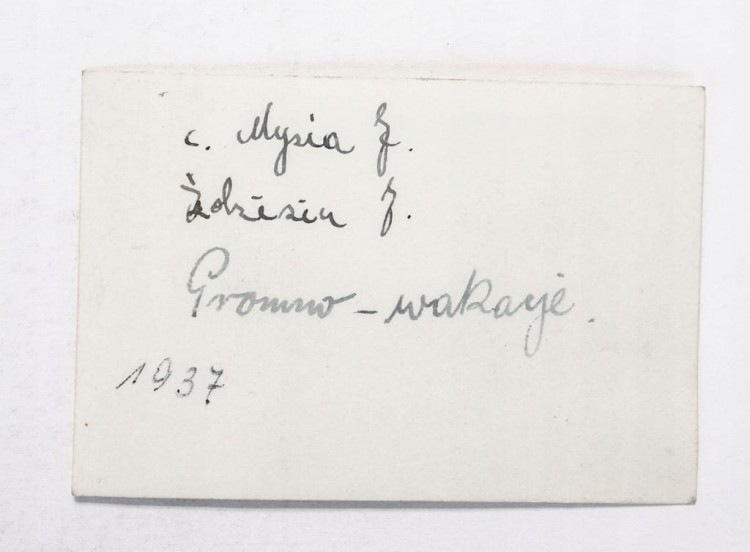 c. Mysia Z.
Zdzisia Z.
Gromno - wakacje.
1937